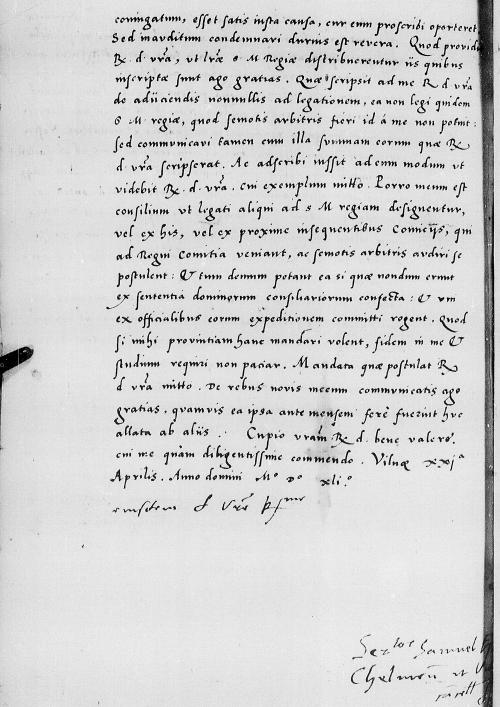 coningatum, esset satis iusta causa, cur eum proscribi oporteret
Sed inauditum condemnari durius est revera. Quod providit
R. d. vra, ut lrae S M Regiae distribuerentur iis quibus
inscriptae sunt ago gratias. Quae scripsit ad me R d vra
de adiiciendis nonnullis ad legationem, ea non legi quidem
S M regiae, quod semotis arbitris fieri id à me non potuit:
sed communicavi tamen cum illa summam eorum quae R
d vra scripserat. Ac adscribi iussit ad eum modum ut
videbit R. d. vra. cui exemplum mitto. Porro meum est
consilium ut legati aliqui ad S M regiam designentur,
vel ex his, vel ex proxime insequentibus Comitiis, qui
ad Regni Comitia veniant, ac semotis arbitris audiri se
postulent: & tum demum petant ea si quae nondum erunt
ex sententia dominorum consiliariorum confecta: & um
ex officialibus eorum expeditionem committi rogent. Quod
si mihi provintiam hanc mandari volent, fidem in me &
studium requiri non paciar. Mandata quae postulat R
d vra mitto. De rebus novis mecum communicatis ago
gratias. quamvis ea ipsa ante mensem ferè fuerint huc
allata ab aliis. Cupio vram R d. bene valere.
cui me quàm diligentissime commendo. Vilnae xxia
Aprilis. Anno domini Mo Do xli.o
eiusdem d Vre
Samuel